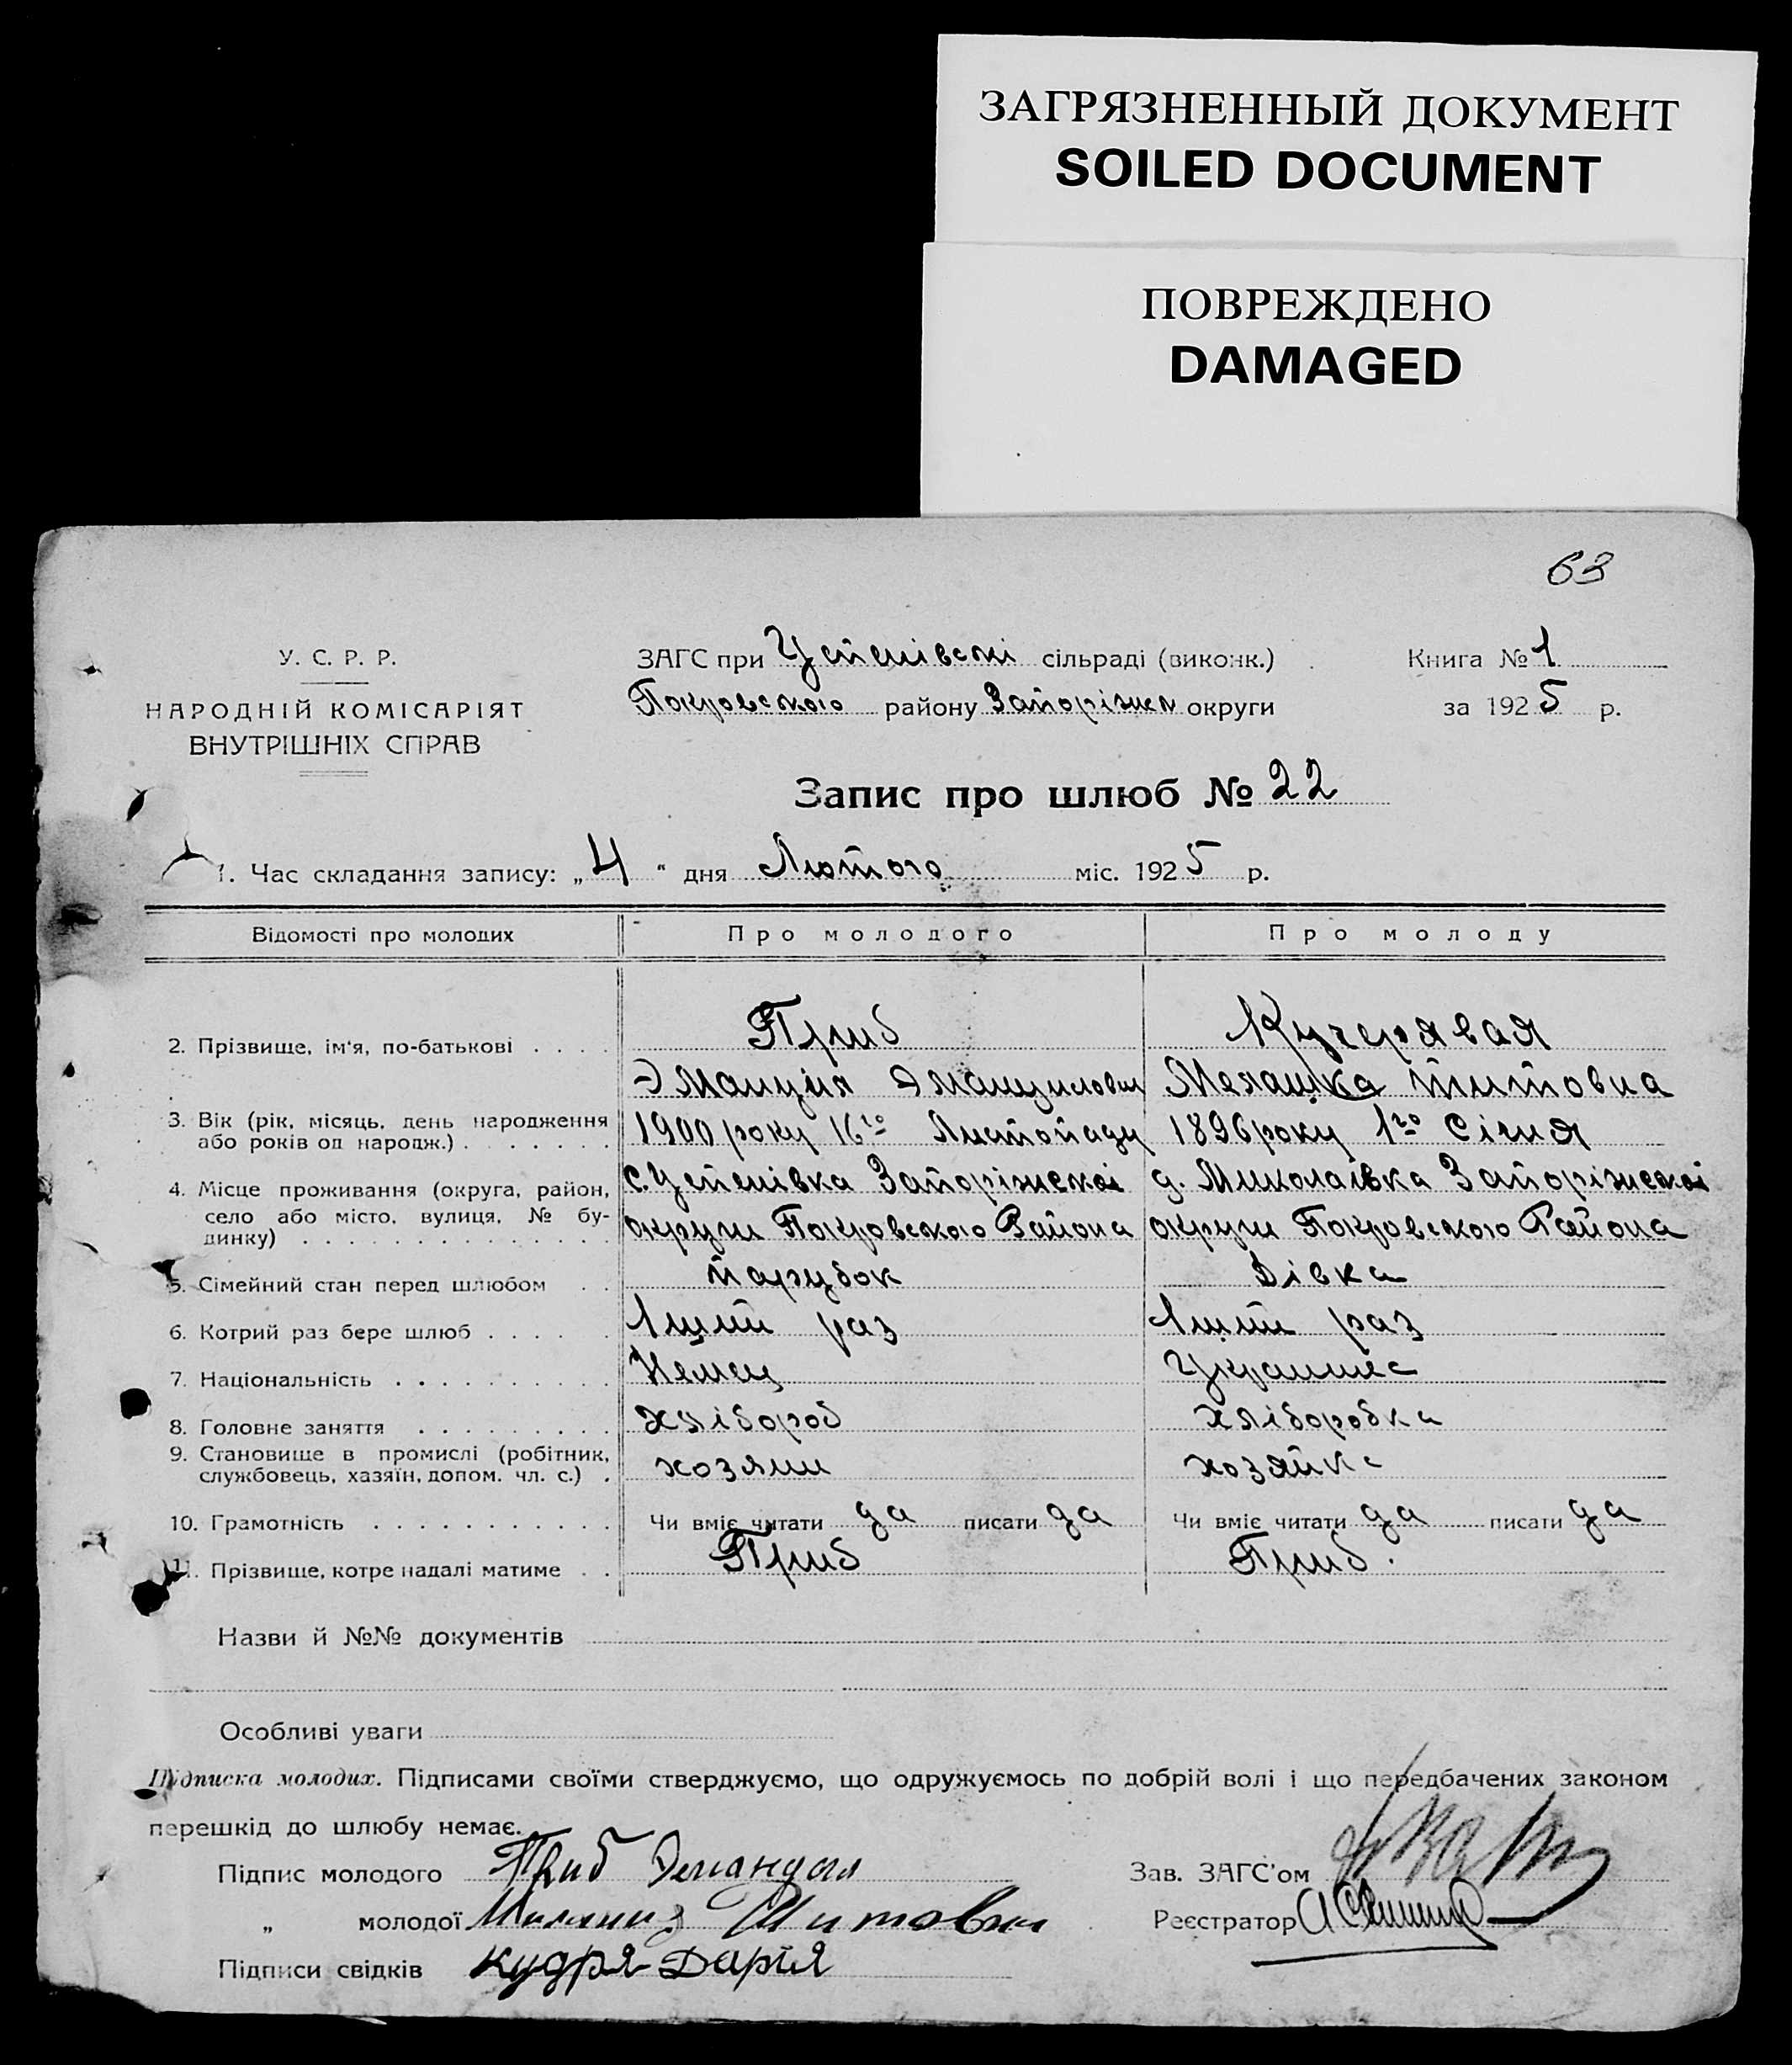 ЗАГРЯЗНЕННЫЙ ДОКУМЕНТ
SOILED DOCUMENT
ПОВРЕЖДЕНО
DAMAGED
63
У. С. Р. Р.
НАРОДНІЙ КОМІСАРІЯТ
ВНУТРІШНІХ СПРАВ
ЗАГС при Успенівскі сільраді (виконк.)
Покровського району Запоріжск округи
Книга № 1
за 1925 р.
Запис про шлюб № 22
1. Час складання запису: „4“ дня Лютого міс. 1925 р.
Відомості про молодих Про молодого Про молоду
2. Прізвище, ім'я, по-батькові . . . . Приб Кучерявая
Меланка Титовна
3. Вік (рік, місяць, день народження
або років од народж.) . . . . . . . 1900 року 16го Листопаду 1896 року 1го Січня
4. Місце проживання (округа, район,
село або місто, вулиця, № бу-
динку) . . . . . . . . . . . . . . .
с. Успенівка Запоріжскоі д. Миколаівка Запоріжскоі
округи Покровського Района округи Покровського Района
5. Сімейний стан перед шлюбом . . парубок Дівка
6. Котрий раз бере шлюб . . . . . 1ший раз 1ший раз
7. Національність . . . . . . . . . . Немец
8. Головне заняття . . . . . . . . . хлібороб хліборобка
9. Становище в промислі (робітник,
службовець, хазяїн, допом. чл. с.) . хозяин хозяйка
10. Грамотність . . . . . . . . . . . Чи вміє читати да писати да Чи вміє читати да писати да
11. Прізвище, котре надалі матиме . . Приб Приб.
Назви й №№ документів
Особливі уваги
Підписка молодих. Підписами своїми стверджуємо, що одружуємось по добрій волі і що передбачених законом
перешкід до шлюбу немає.
Підпис молодого Приб
Зав. ЗАГС'ом
„ молодої Титовна
Реєстратор
Підписи свідків Кудря Дарія